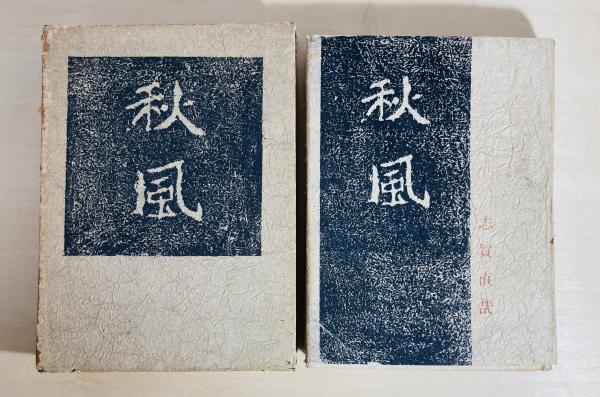 秋風
秋風
志賀直哉